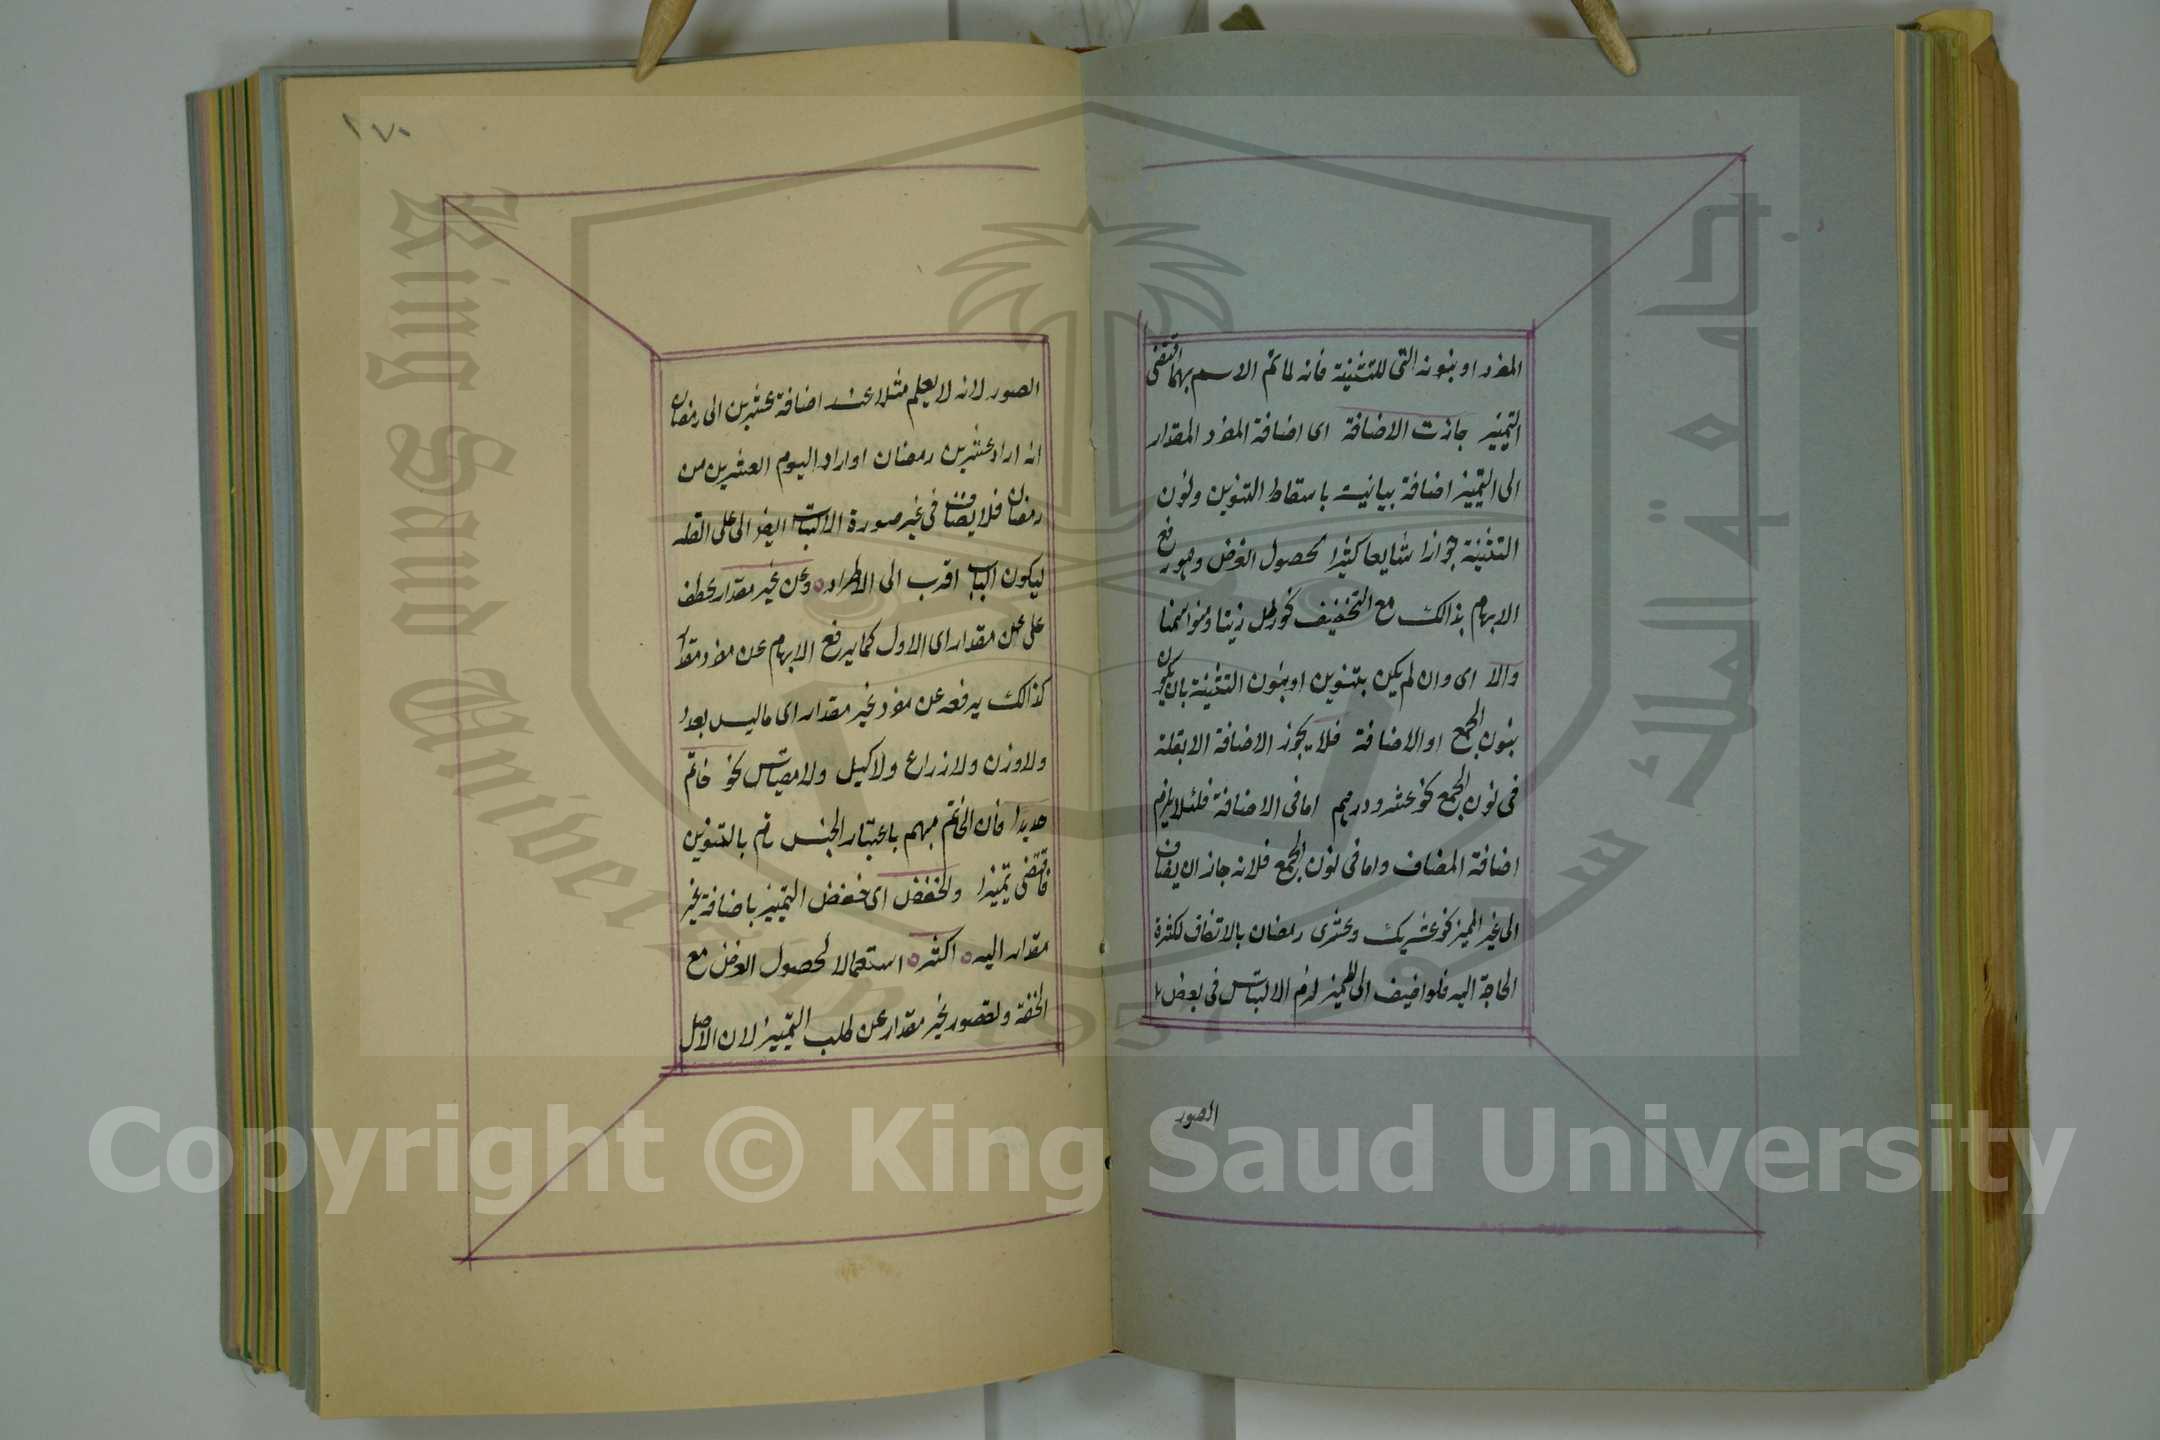 المفرد او بنونه التى للتثنية فانه لما تم الاسم بهما اقتضى
التميز جازت الاضافة اى اضافة المفرد المقدار
الى التميز اضافة بيانية باسقاط التنوين ونون
التثنية جوازا شايعا كثيرا لحصول الغرض وهو رفع
الابهام بذالك مع التخفيف نحو رطل زيتا ومنوا سمنا
والا اى وان لم يكن بتنوين او بنون التثنية بان يكون
بنون الجمع او الاضافة فلا يجوز الاضافة الا بقلة
فى نون الجمع نحو عشرو درهم اما فى الاضافة فلئلا يلزم
اضافة المضاف واما فى نون الجمع فلانه جاز ان يضاف
الى غير المميز نحو عشريك وعشرى رمضان بالاتفاق لكثرة
الحاجة اليه فلو اضيف الى المميز لزم الالتباس فى بعض
الصور
١٧٠
الصور لانه لا يعلم مثلا عند اضافة عشرين الى رمضان
انه اراد عشرين رمضان او اراد اليوم العشرين من
رمضان فلا يضاف فى غير صورة الالتباس ايضا الى على القلة
ليكون الباب اقرب الى الاطراد وعن غير مقدار عطف
على عن مقدار اى الاول كما يرفع الابهام عن مفرد مقدار
كذالك يرفعه عن مفرد غير مقدار اى ما ليس بعدد
ولا وزن ولا ذراع ولا كيل ولا مقياس نحو خاتم
حديدا فان الخاتم مبهم باعتبار الجنس تم بالتنوين
فاقتضى تميزا والخفض اى خفض التميز باضافة غير
مقدار اليه اكثر استعمالا لحصول الغرض مع
الخفة ولقصور غير مقدار عن طلب التميز لان الاصل
Copyright © King Saud University
King Saud University
جامعة الملك سعود
1957